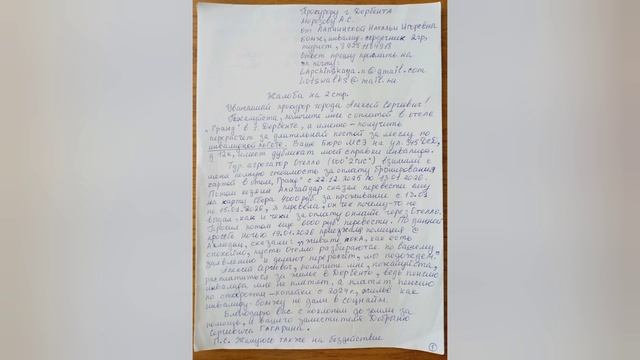 Прокурору г. Дербента
Морозову А.С.
от Лапчинской Натальи Игоревны
бомже, инвалид-сердечник 2гр,
турист,
ответ прошу прислать на
эл. почту:
Lapchinskaya.n@gmail.com
@mail.ru
Жалоба на 2 стр.
Уважаемый прокурор города Алексей Сергеевич!
Пожалуйста, помогите мне с оплатой в отеле
"Гранд" в г. Дербенте, а именно - получить
перерасчет за длительный постой за месяц по
инвалидской льготе. Ваше бюро МСЭ на ул. 345 ДСД,
д 12к, имеет дубликат моей справки инвалида.
Тур. агрегатор Отелло (ООО "2ГИС") взимали с
меня полную стоимость за оплату бронирования
картой в отель "Гранд" с 22.12.2025 по 13.01.2026.
Потом хозяин Алигайдар сказал перевести ему
на карту Сбера 4000 руб. за проживание с 13.01
по 15.01.2026, я перевела, он чек почему-то не
выдал, как и чеки за оплату онлайн через Отелло.
Просил потом ещё 6000 руб. перевести. По данной
просьбе ночью 19.01.2026 приезжала полиция с
сказали: "живите пока, как есть
спокойно, пусть Отелло разбираются по вашему
заявлению и делают перерасчет, мы подождем."
Алексей Сергеевич, помогите мне, пожалуйста,
расплатиться за жилье в Дербенте, ведь пенсию
инвалида мне не платят, а платят пенсию
по старости - копейки с 2024 г., жильё как
инвалиду-бомжу не дали в соцнайм.
Благодарю вас с поклоном до земли за
помощь, и вашего заместителя
Сергеевича Гагарина.
P.S. Жалуюсь также на бездействие
1